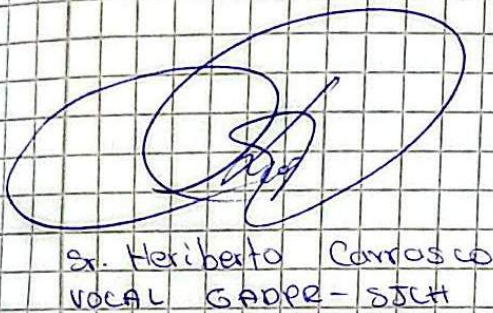 Sr. Heriberto Carrasco
VOCAL GADPR - SJCH